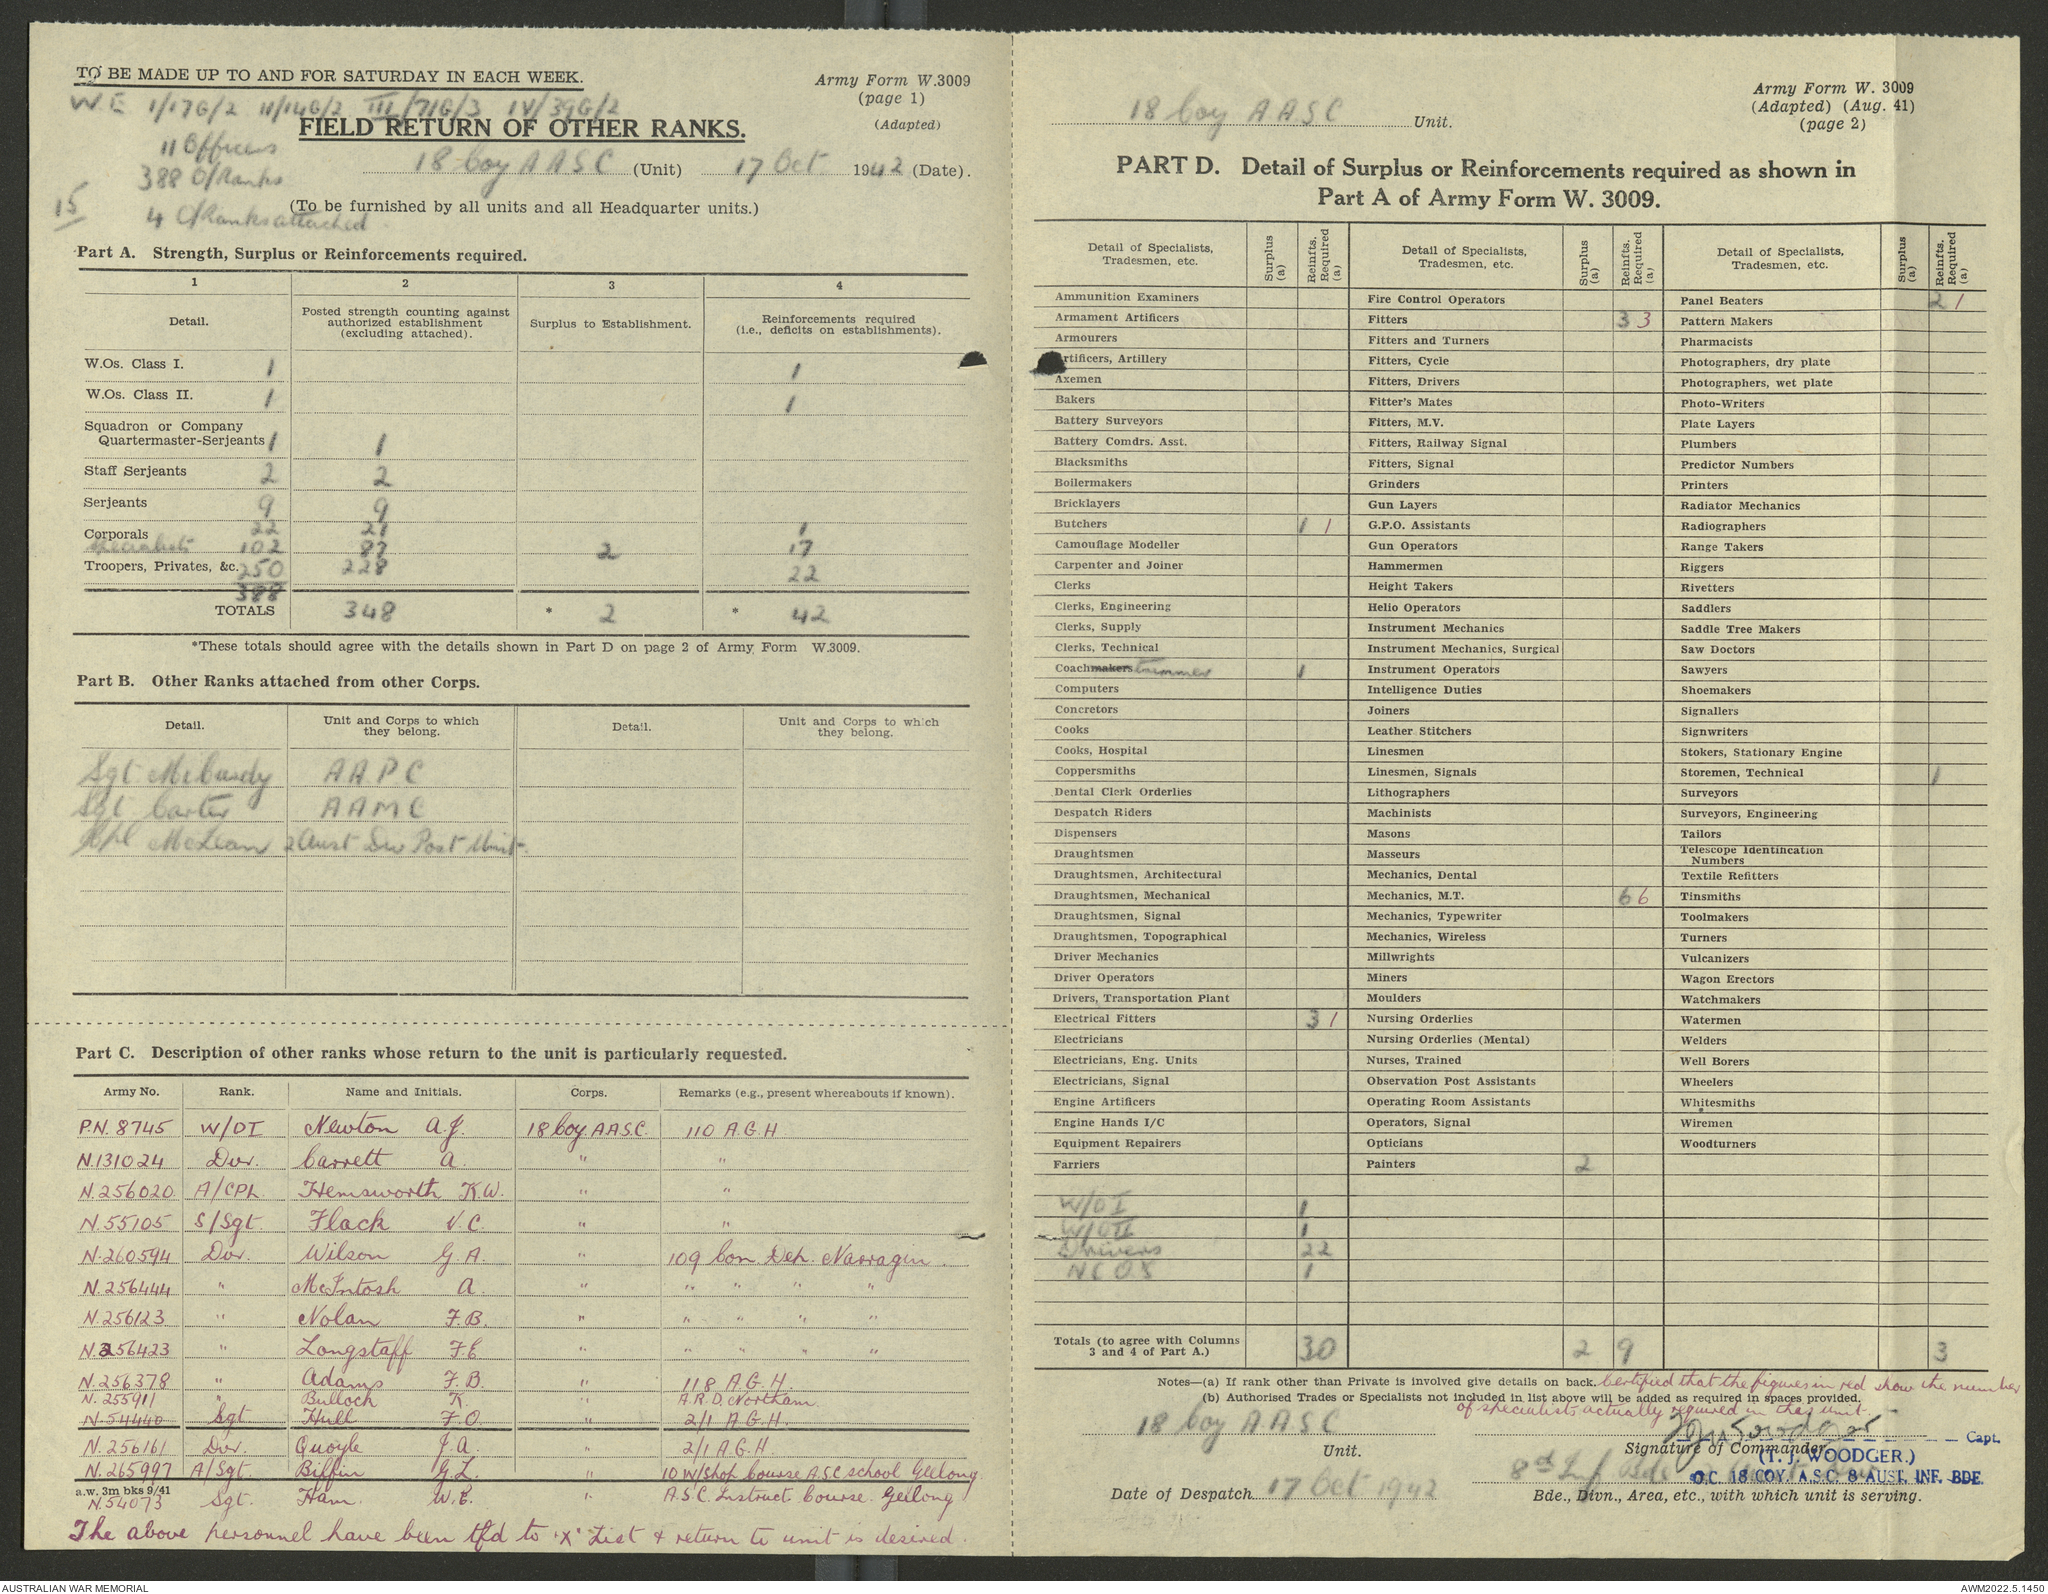 TO BE MADE UP TO AND FOR SATURDAY IN EACH WEEK.
Army Form W.3009
(page 1)
(Adapted)
W.E 1/17G/2 11/14G/2 III/71G/3 IV/39G/2
FIELD RETURN OF OTHER RANKS.
11 Officers
388 O/Ranks
15
4 O/Ranks attached
18 Coy A A S C (Unit) 17 Oct 1942 (Date).
(To be furnished by all units and all Headquarter units.)
Part A. Strength, Surplus or Reinforcements required.
1 2 3 4
Detail. Posted strength counting against authorized establishment (excluding attached). Surplus to Establishment. Reinforcements required (i.e., deficits on establishments).
W.Os. Class I. 1 1
W.Os. Class II. 1 1
Squadron or Company
Quartermaster-Serjeants 1 1
Staff Serjeants 2 2
Serjeants 9 9
Corporals 22 21 1
Specialists 102 87 2 17
Troopers, Privates, &c. 250 228 22
388
TOTALS 348 * 2 * 42
*These totals should agree with the details shown in Part D on page 2 of Army Form W.3009.
Part B. Other Ranks attached from other Corps.
Detail. Unit and Corps to which they belong. Detail. Unit and Corps to which they belong.
Sgt McCurdy A A P C
Sgt Carter A A M C
Cpl McLean 2 Aust Div Post Unit.
Part C. Description of other ranks whose return to the unit is particularly requested.
Army No. Rank. Name and Initials. Corps. Remarks (e.g., present whereabouts if known).
P.N. 8745 W/OI Newton A.J. 18 Coy. A.A.S.C. 110 A.G.H
N.131024 Dvr. Carrett A. " "
N.256020 A/CPL Hemsworth K.W. " "
N.55105 S/Sgt Flack V.C. " "
N.260594 Dvr. Wilson G.A. " 109 Con. Dep. Narrogin.
N.256444 " McIntosh A. " " " " "
N.256123 " Nolan F.B. " " " " "
N.256423 " Longstaff F.E " " " " "
N.256378 " Adams F.B. " 118 A.G.H.
N.255911 " Bulloch K. A.R.D. Northam
N.54440 Sgt Hull F.O. " 2/1 A.G.H.
N.256161 Dvr. Quoyle J.A. " 2/1 A.G.H.
N.265997 A/Sgt. Biffin G.L. " 10 W/Shop Course A.S.C school Geelong
a.w. 3m bks 9/41
N.54073 Sgt. Ham. W.E. " A.S.C. Instruct. Course. Geelong
The above personnel have been tfd to 'X' List & return to unit is desired.
Army Form W. 3009
(Adapted) (Aug. 41)
(page 2)
18 Coy A A S C Unit.
PART D. Detail of Surplus or Reinforcements required as shown in
Part A of Army Form W. 3009.
Detail of Specialists, Tradesmen, etc. Surplus (a) Reinfts. Required (a)
Ammunition Examiners
Armament Artificers
Armourers
Artificers, Artillery
Axemen
Bakers
Battery Surveyors
Battery Comdrs. Asst.
Blacksmiths
Boilermakers
Bricklayers
Butchers 1 1
Camouflage Modeller
Carpenter and Joiner
Clerks
Clerks, Engineering
Clerks, Supply
Clerks, Technical
Coachmakers trimmer 1
Computers
Concretors
Cooks
Cooks, Hospital
Coppersmiths
Dental Clerk Orderlies
Despatch Riders
Dispensers
Draughtsmen
Draughtsmen, Architectural
Draughtsmen, Mechanical
Draughtsmen, Signal
Draughtsmen, Topographical
Driver Mechanics
Driver Operators
Drivers, Transportation Plant
Electrical Fitters 3 1
Electricians
Electricians, Eng. Units
Electricians, Signal
Engine Artificers
Engine Hands I/C
Equipment Repairers
Farriers
W/O I 1
W/O II 1
Drivers 22
N C O S 1
Totals (to agree with Columns 3 and 4 of Part A.) 30
Detail of Specialists, Tradesmen, etc. Surplus (a) Reinfts. Required (a)
Fire Control Operators
Fitters 3 3
Fitters and Turners
Fitters, Cycle
Fitters, Drivers
Fitter's Mates
Fitters, M.V.
Fitters, Railway Signal
Fitters, Signal
Grinders
Gun Layers
G.P.O. Assistants
Gun Operators
Hammermen
Height Takers
Helio Operators
Instrument Mechanics
Instrument Mechanics, Surgical
Instrument Operators
Intelligence Duties
Joiners
Leather Stitchers
Linesmen
Linesmen, Signals
Lithographers
Machinists
Masons
Masseurs
Mechanics, Dental
Mechanics, M.T. 6 6
Mechanics, Typewriter
Mechanics, Wireless
Millwrights
Miners
Moulders
Nursing Orderlies
Nursing Orderlies (Mental)
Nurses, Trained
Observation Post Assistants
Operating Room Assistants
Operators, Signal
Opticians
Painters 2
2 9
Detail of Specialists, Tradesmen, etc. Surplus (a) Reinfts. Required (a)
Panel Beaters 2 1
Pattern Makers
Pharmacists
Photographers, dry plate
Photographers, wet plate
Photo-Writers
Plate Layers
Plumbers
Predictor Numbers
Printers
Radiator Mechanics
Radiographers
Range Takers
Riggers
Rivetters
Saddlers
Saddle Tree Makers
Saw Doctors
Sawyers
Shoemakers
Signallers
Signwriters
Stokers, Stationary Engine
Storemen, Technical 1
Surveyors
Surveyors, Engineering
Tailors
Telescope Identification Numbers
Textile Refitters
Tinsmiths
Toolmakers
Turners
Vulcanizers
Wagon Erectors
Watchmakers
Watermen
Welders
Well Borers
Wheelers
Whitesmiths
Wiremen
Woodturners
3
Notes—(a) If rank other than Private is involved give details on back. Certified that the figures in red show the number
(b) Authorised Trades or Specialists not included in list above will be added as required in spaces provided.
of specialists actually required in this unit.
18 Coy A.A.S.C
Unit.
TJ Woodger Capt.
Signature of Commander.
(T. J. WOODGER.)
O.C 18 COY. A.S.C. 8 AUST. INF. BDE.
8th Inf Bde
Date of Despatch 17 Oct 1942
Bde., Divn., Area, etc., with which unit is serving.
AUSTRALIAN WAR MEMORIAL
AWM2022.5.1450